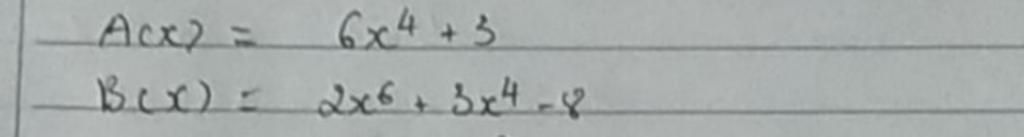 A(x) = 6x⁴ + 3
B(x) = 2x⁶ + 3x⁴ - 8